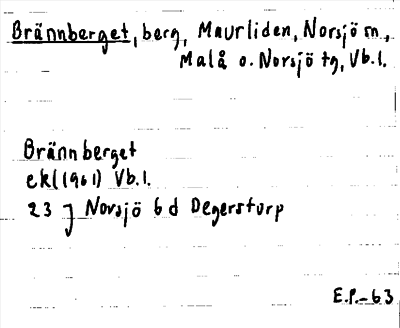 Brännberget, berg, Maurliden, Norsjö sn,
Malå o. Norsjö tg, Vb.l.
Brännberget
ek(1961) Vb.l.
23 J Norsjö 6 d Degerstorp
E.P.-63